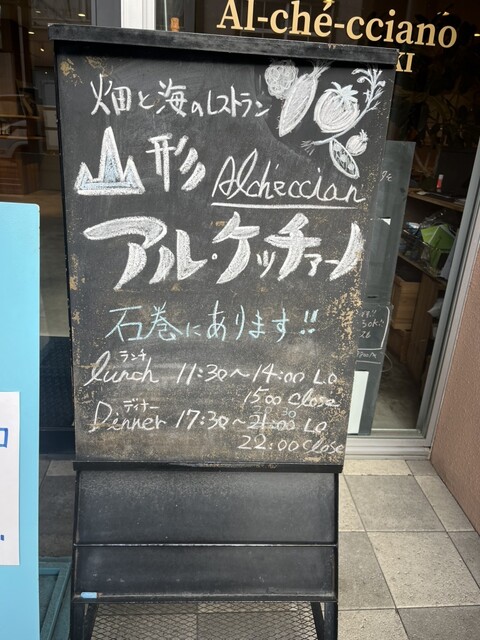 Al-ché-cciano
KI
畑と海のレストラン
山形 Alcheccian
アル・ケッチァーノ
石巻にあります!!
ランチ
lunch 11:30～14:00 LO
1500 close
ディナー
Dinner 17:30～21:00 LO
22:00 close